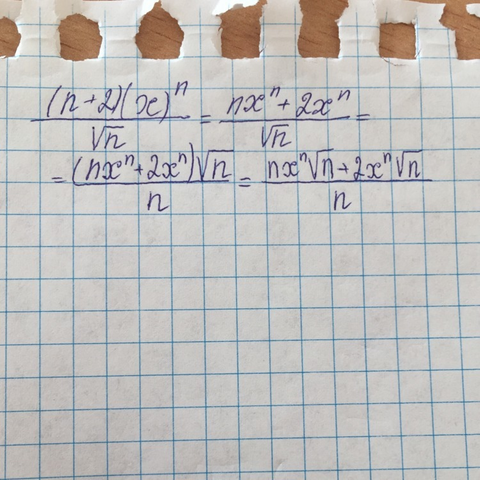 (n+2)(x)ⁿ/√n = nxⁿ+2xⁿ/√n =
= (nxⁿ+2xⁿ)√n/n = nxⁿ√n+2xⁿ√n/n